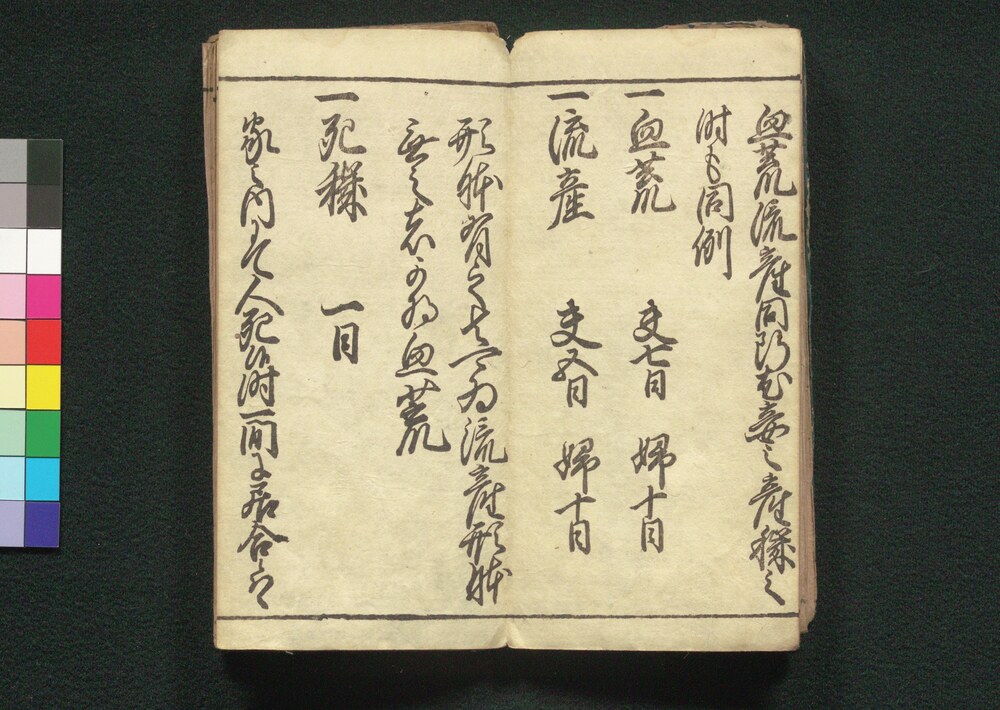 血荒流産同断尤妾之産穢之
時も同例
一血荒 夫七日 婦十日
一流産 夫五日 婦十日
形体有之者可為流産形体
無之者可為血荒
一死穢 一日
家之内にて人死候時一間に居合候は